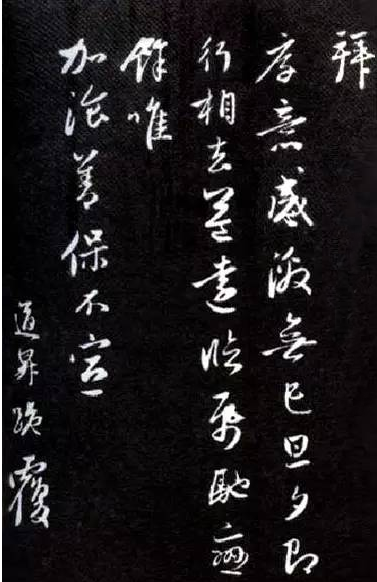 拜
厚意感激無已旦夕即
行相去益遠臨馳
餘唯
加湌善保不宣
道昇跪覆